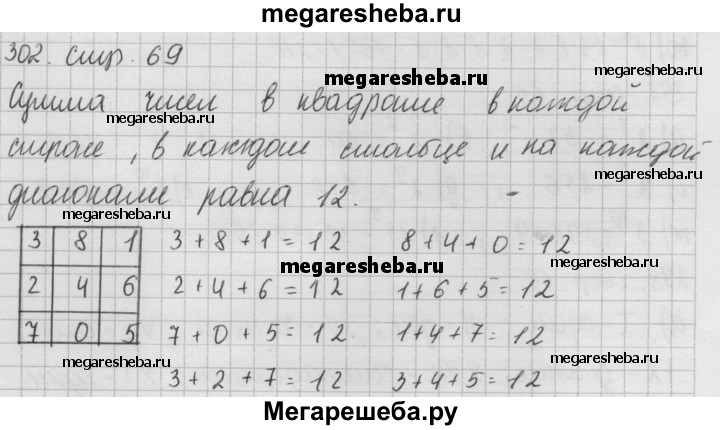 megaresheba.ru
302. стр. 69
megaresheba.ru
megaresheba.ru
Сумма чисел в квадрате в каждой
megaresheba.ru
строке, в каждом столбце и на каждой
megaresheba.ru
диагонали равна 12.
megaresheba.ru
megaresheba.ru
3 8 1 3 + 8 + 1 = 12 8 + 4 + 0 = 12
megaresheba.ru
megaresheba.ru
2 4 6 2 + 4 + 6 = 12 1 + 6 + 5 = 12
7 0 5 7 + 0 + 5 = 12 1 + 4 + 7 = 12
megaresheba.ru
megaresheba.ru
3 + 2 + 7 = 12 3 + 4 + 5 = 12
Мегарешеба.ру